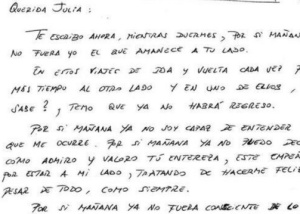 QUERIDA JULIA:
TE ESCRIBO AHORA, MIENTRAS DUERMES, POR SI MAÑANA
NO FUERA YO EL QUE AMANECE A TU LADO.
EN ESTOS VIAJES DE IDA Y VUELTA CADA VEZ P
MÁS TIEMPO AL OTRO LADO Y EN UNO DE ELLOS,
SABE?, TEMO QUE YA NO HABRÁ REGRESO.
POR SI MAÑANA YA NO SOY CAPAZ DE ENTENDER
QUE ME OCURRE. POR SI MAÑANA YA NO PUEDO DEC
CÓMO ADMIRO Y VALORO TU ENTEREZA, ESTE EMPEÑ
POR ESTAR A MI LADO, TRATANDO DE HACERME FELI
PESAR DE TODO, COMO SIEMPRE.
POR SI MAÑANA YA NO FUERA CONSCIENTE DE LO